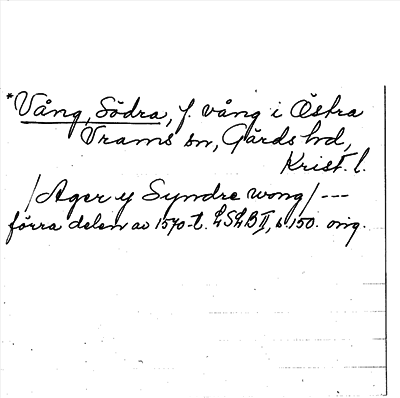 *Vång, Södra, f. vång i Östra
Vrams sn, Gärds hd,
Krist. l.
/Ager y Syndre wong/ ---
förra delen av 1570-t. LSLB II, s 150. orig.